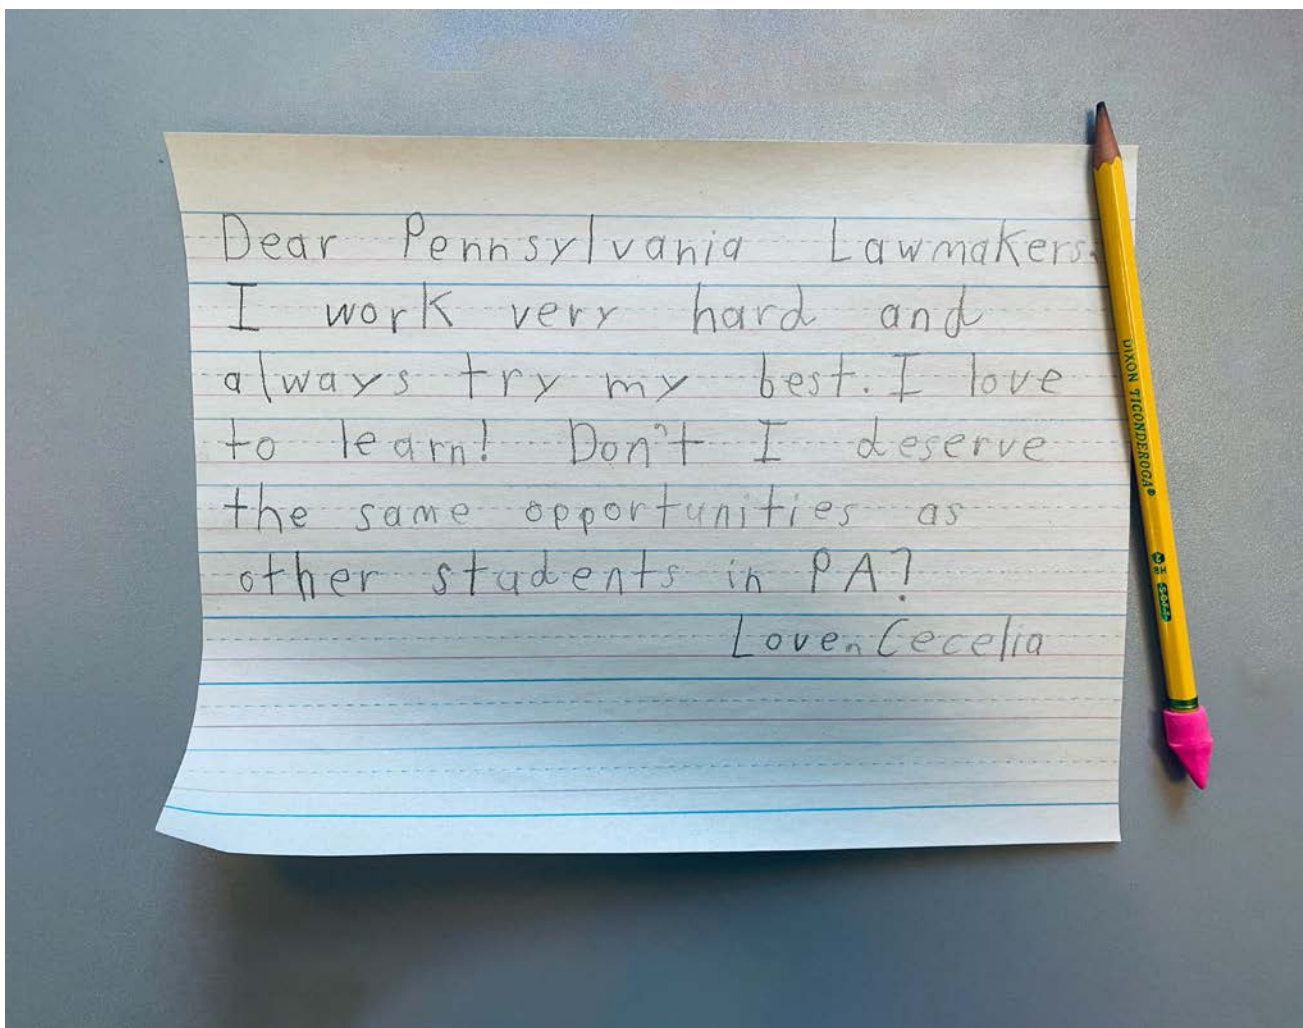 Dear Pennsylvania Lawmakers:
I work very hard and
always try my best. I love
to learn! Don't I deserve
the same opportunities as
other students in PA?
Love, Cecelia
DIXON TICONDEROGA®
SOFT